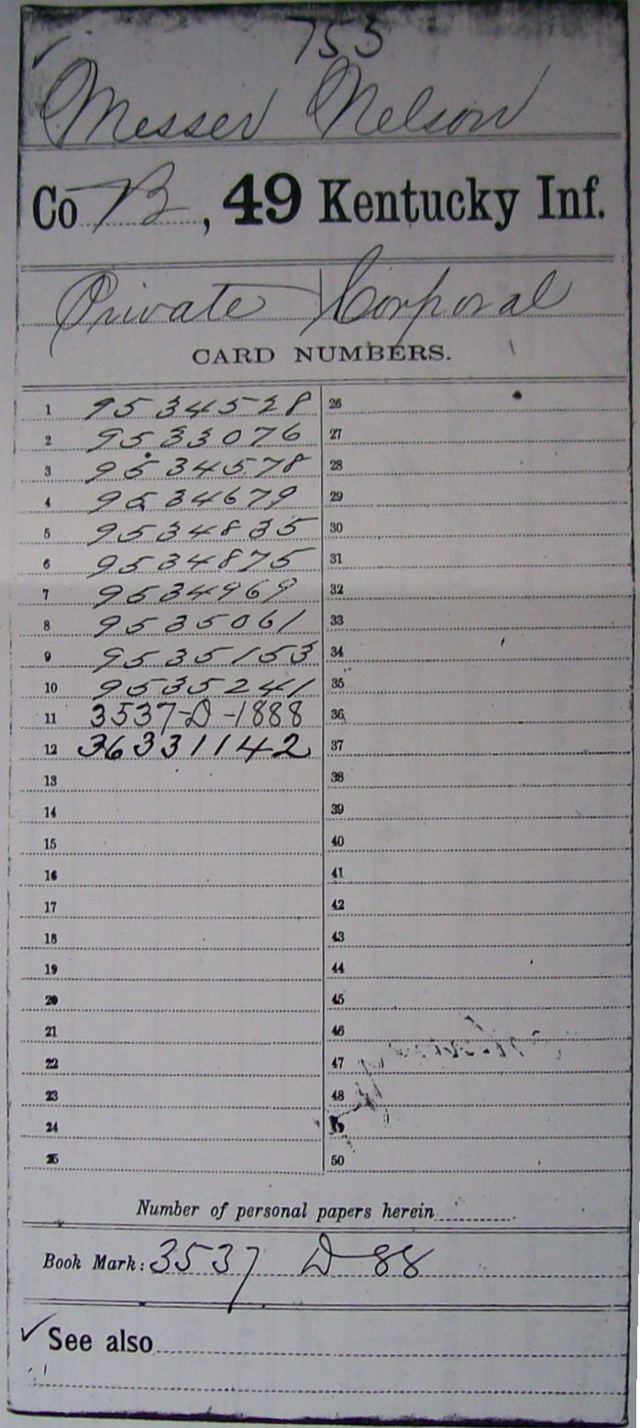 753
Messer Nelson
Co B, 49 Kentucky Inf.
Private Corporal
CARD NUMBERS.
1 9534528 26
2 9533076 27
3 9534578 28
4 9534679 29
5 9534835 30
6 9534875 31
7 9534969 32
8 9535061 33
9 9535153 34
10 9535241 35
11 3537-D-1888 36
12 36331142 37
13 38
14 39
15 40
16 41
17 42
18 43
19 44
20 45
21 46
22 47
23 48
24
25 50
Number of personal papers herein
Book Mark: 3537 D 88
✓ See also